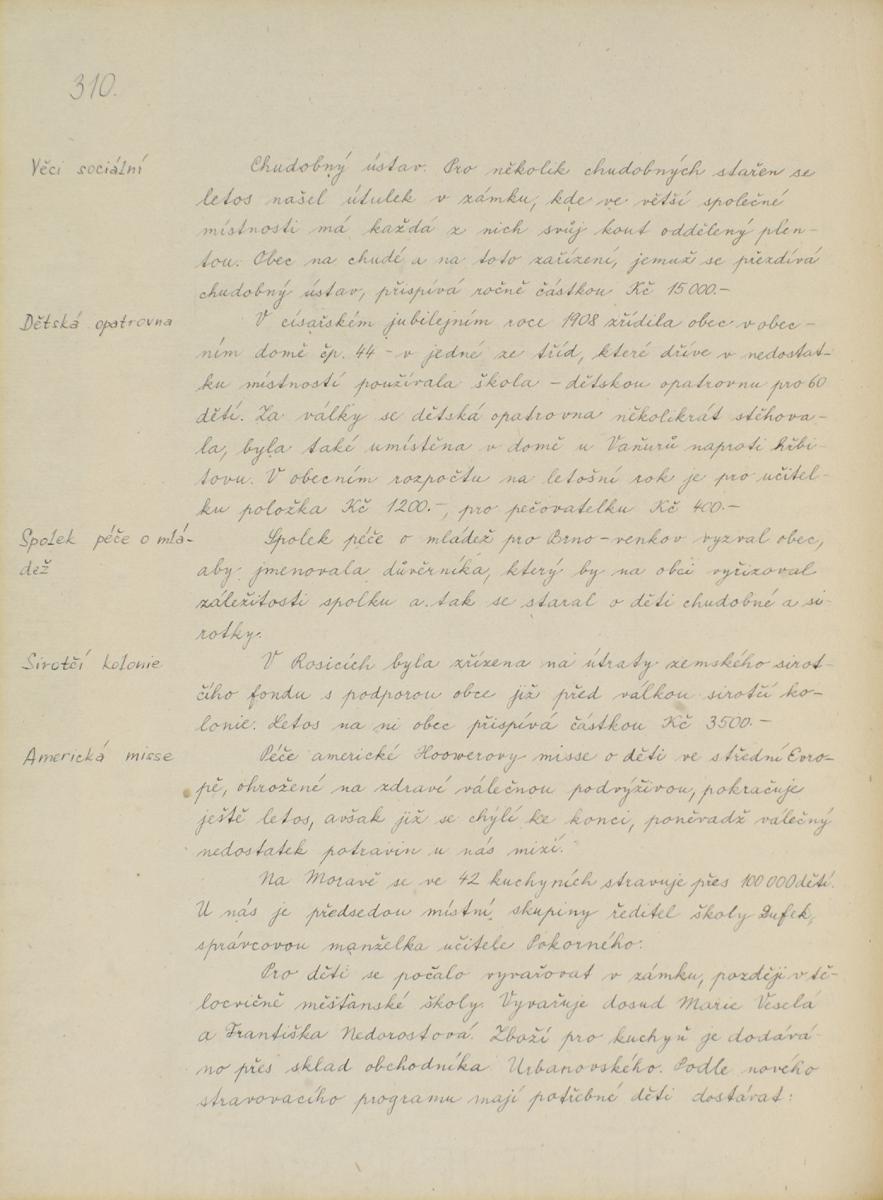 310.
Věci sociální
Chudobný ústav. Pro několik chudobných stařen se
letos našel útulek v zámku, kde ve větší společné
místnosti má každá z nich svůj kout oddělený plen-
tou. Obec na chudé a na toto zařízení, jemuž se přezdívá
chudobný ústav, přispívá ročně částkou Kč 15000.-
Dětská opatrovna
V císařském jubilejním roce 1908 zřídila obec v obec-
ním domě čp. 44 - v jedné ze tříd, které dříve v nedostat-
ku místností používala škola - dětskou opatrovnu pro 60
dětí. Za války se dětská opatrovna několikrát stěhova-
la, byla také umístěna v domě u Vaňurů naproti hřbi-
tovu. V obecním rozpočtu na letošní rok je pro učitel-
ku položka Kč 1200.-, pro pečovatelku Kč 400.-
Spolek péče o mlá-
dež
Spolek péče o mládež pro Brno-venkov vyzval obec,
aby jmenovala důvěrníka, který by na obci vyřizoval
záležitosti spolku a tak se staral o děti chudobné a si-
rotky.
Sirotčí kolonie
V Rosicích byla zřízena na útraty zemského sirot-
čího fondu s podporou obce již před válkou sirotčí ko-
lonie. Letos na ni obec přispívá částkou Kč 3500.-
Americká misse
Péče americké Hoowerovy misse o děti ve střední Evro-
pě, ohrožené na zdraví válečnou podvýživou, pokračuje
ještě letos, avšak již se chýlí ke konci, poněvadž válečný
nedostatek potravin u nás mizí.
Na Moravě se ve 42 kuchyních stravuje přes 100000 dětí.
U nás je předsedou místní skupiny ředitel školy Dufek,
správcovou manželka učitele Pokorného.
Pro děti se počalo vyvařovat v zámku, později v tě-
locvičně měšťanské školy. Vyvařuje dosud Marie Veselá
a Františka Nedorostová. Zboží pro kuchyň je dodává-
no přes sklad obchodníka Urbanovského. Podle nového
stravovacího programu mají potřebné děti dostávat: